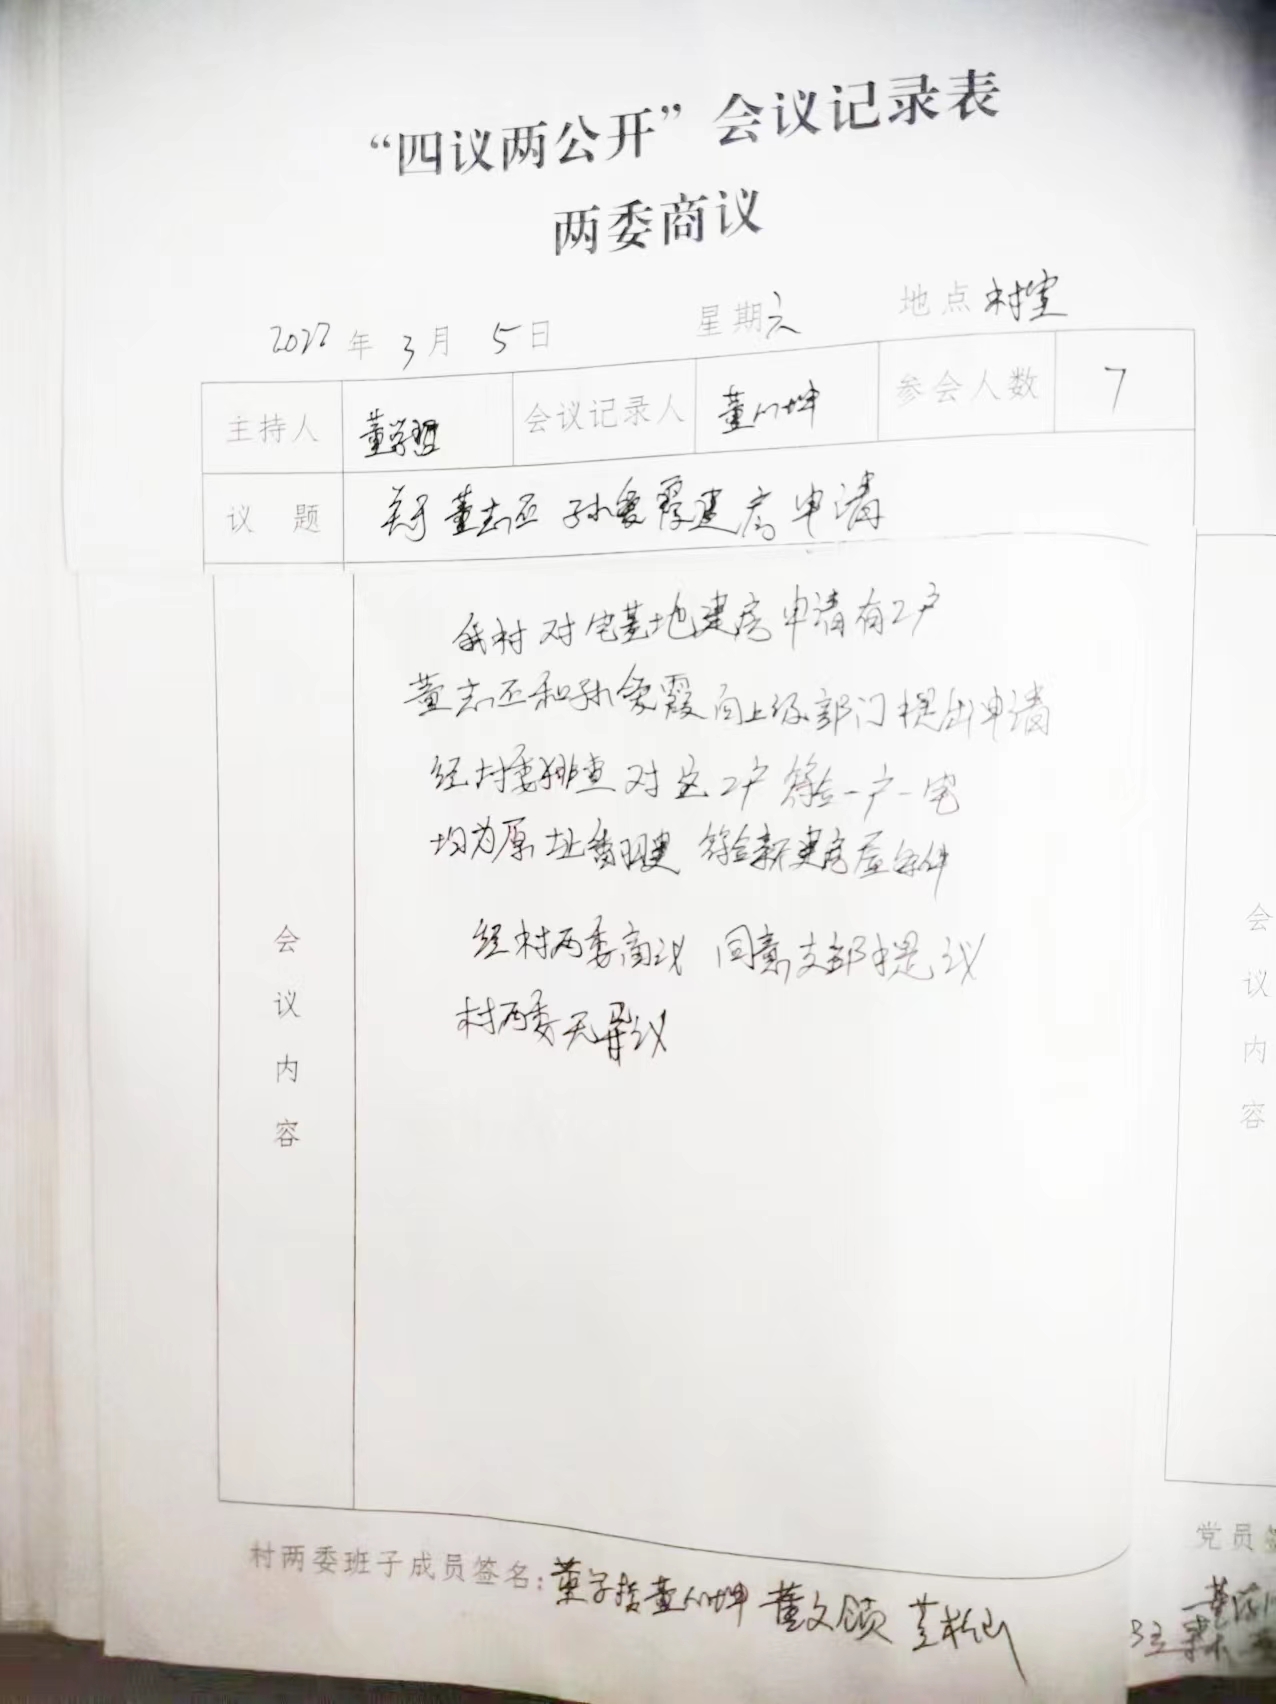 “四议两公开”会议记录表
两委商议
2022年3月5日 星期六 地点 村室
主持人 董学 会议记录人 董 坤 参会人数 7
议题 关于董志丕 孙爱霞建房申请
我村对宅基地建房申请有2户
董志丕和孙爱霞向上级部门提出申请
经村委排查对这2户符合一户一宅
均为原址翻建 符合新建房屋条件
经村两委商议 同意支部提议
村两委无异议
会议内容
会议内容
村两委班子成员签名: 董文领
党员